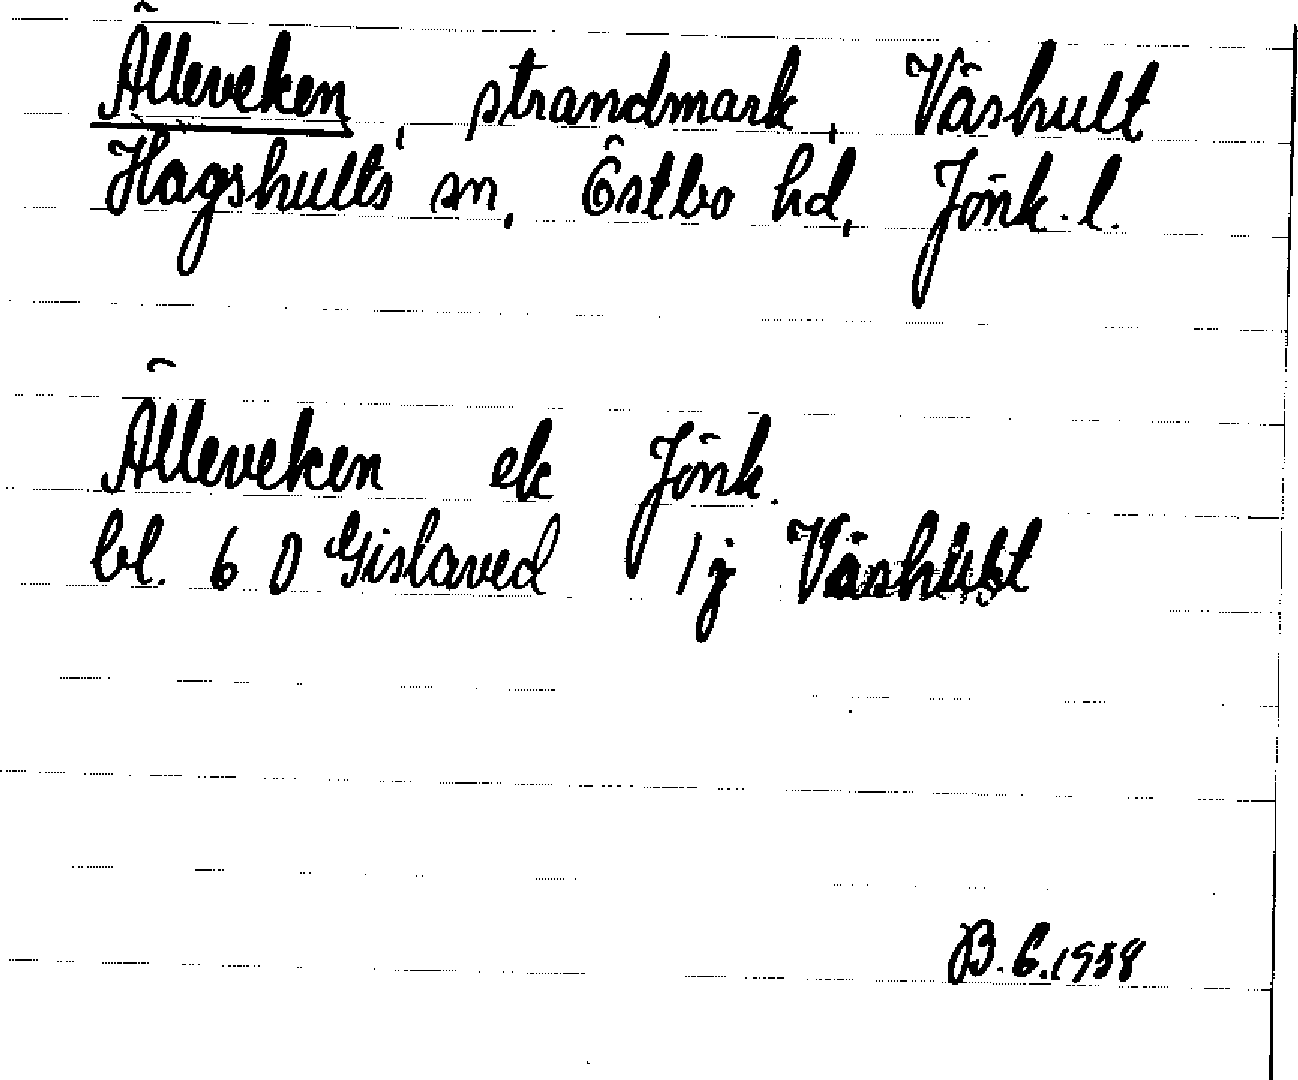 Älleveken, strandmark, Våshult
Hagshults sn, Östbo hd, Jönk. l.
Älleveken ek Jönk.
bl. 6 D Gislaved 1j Våshult
B.E.1958